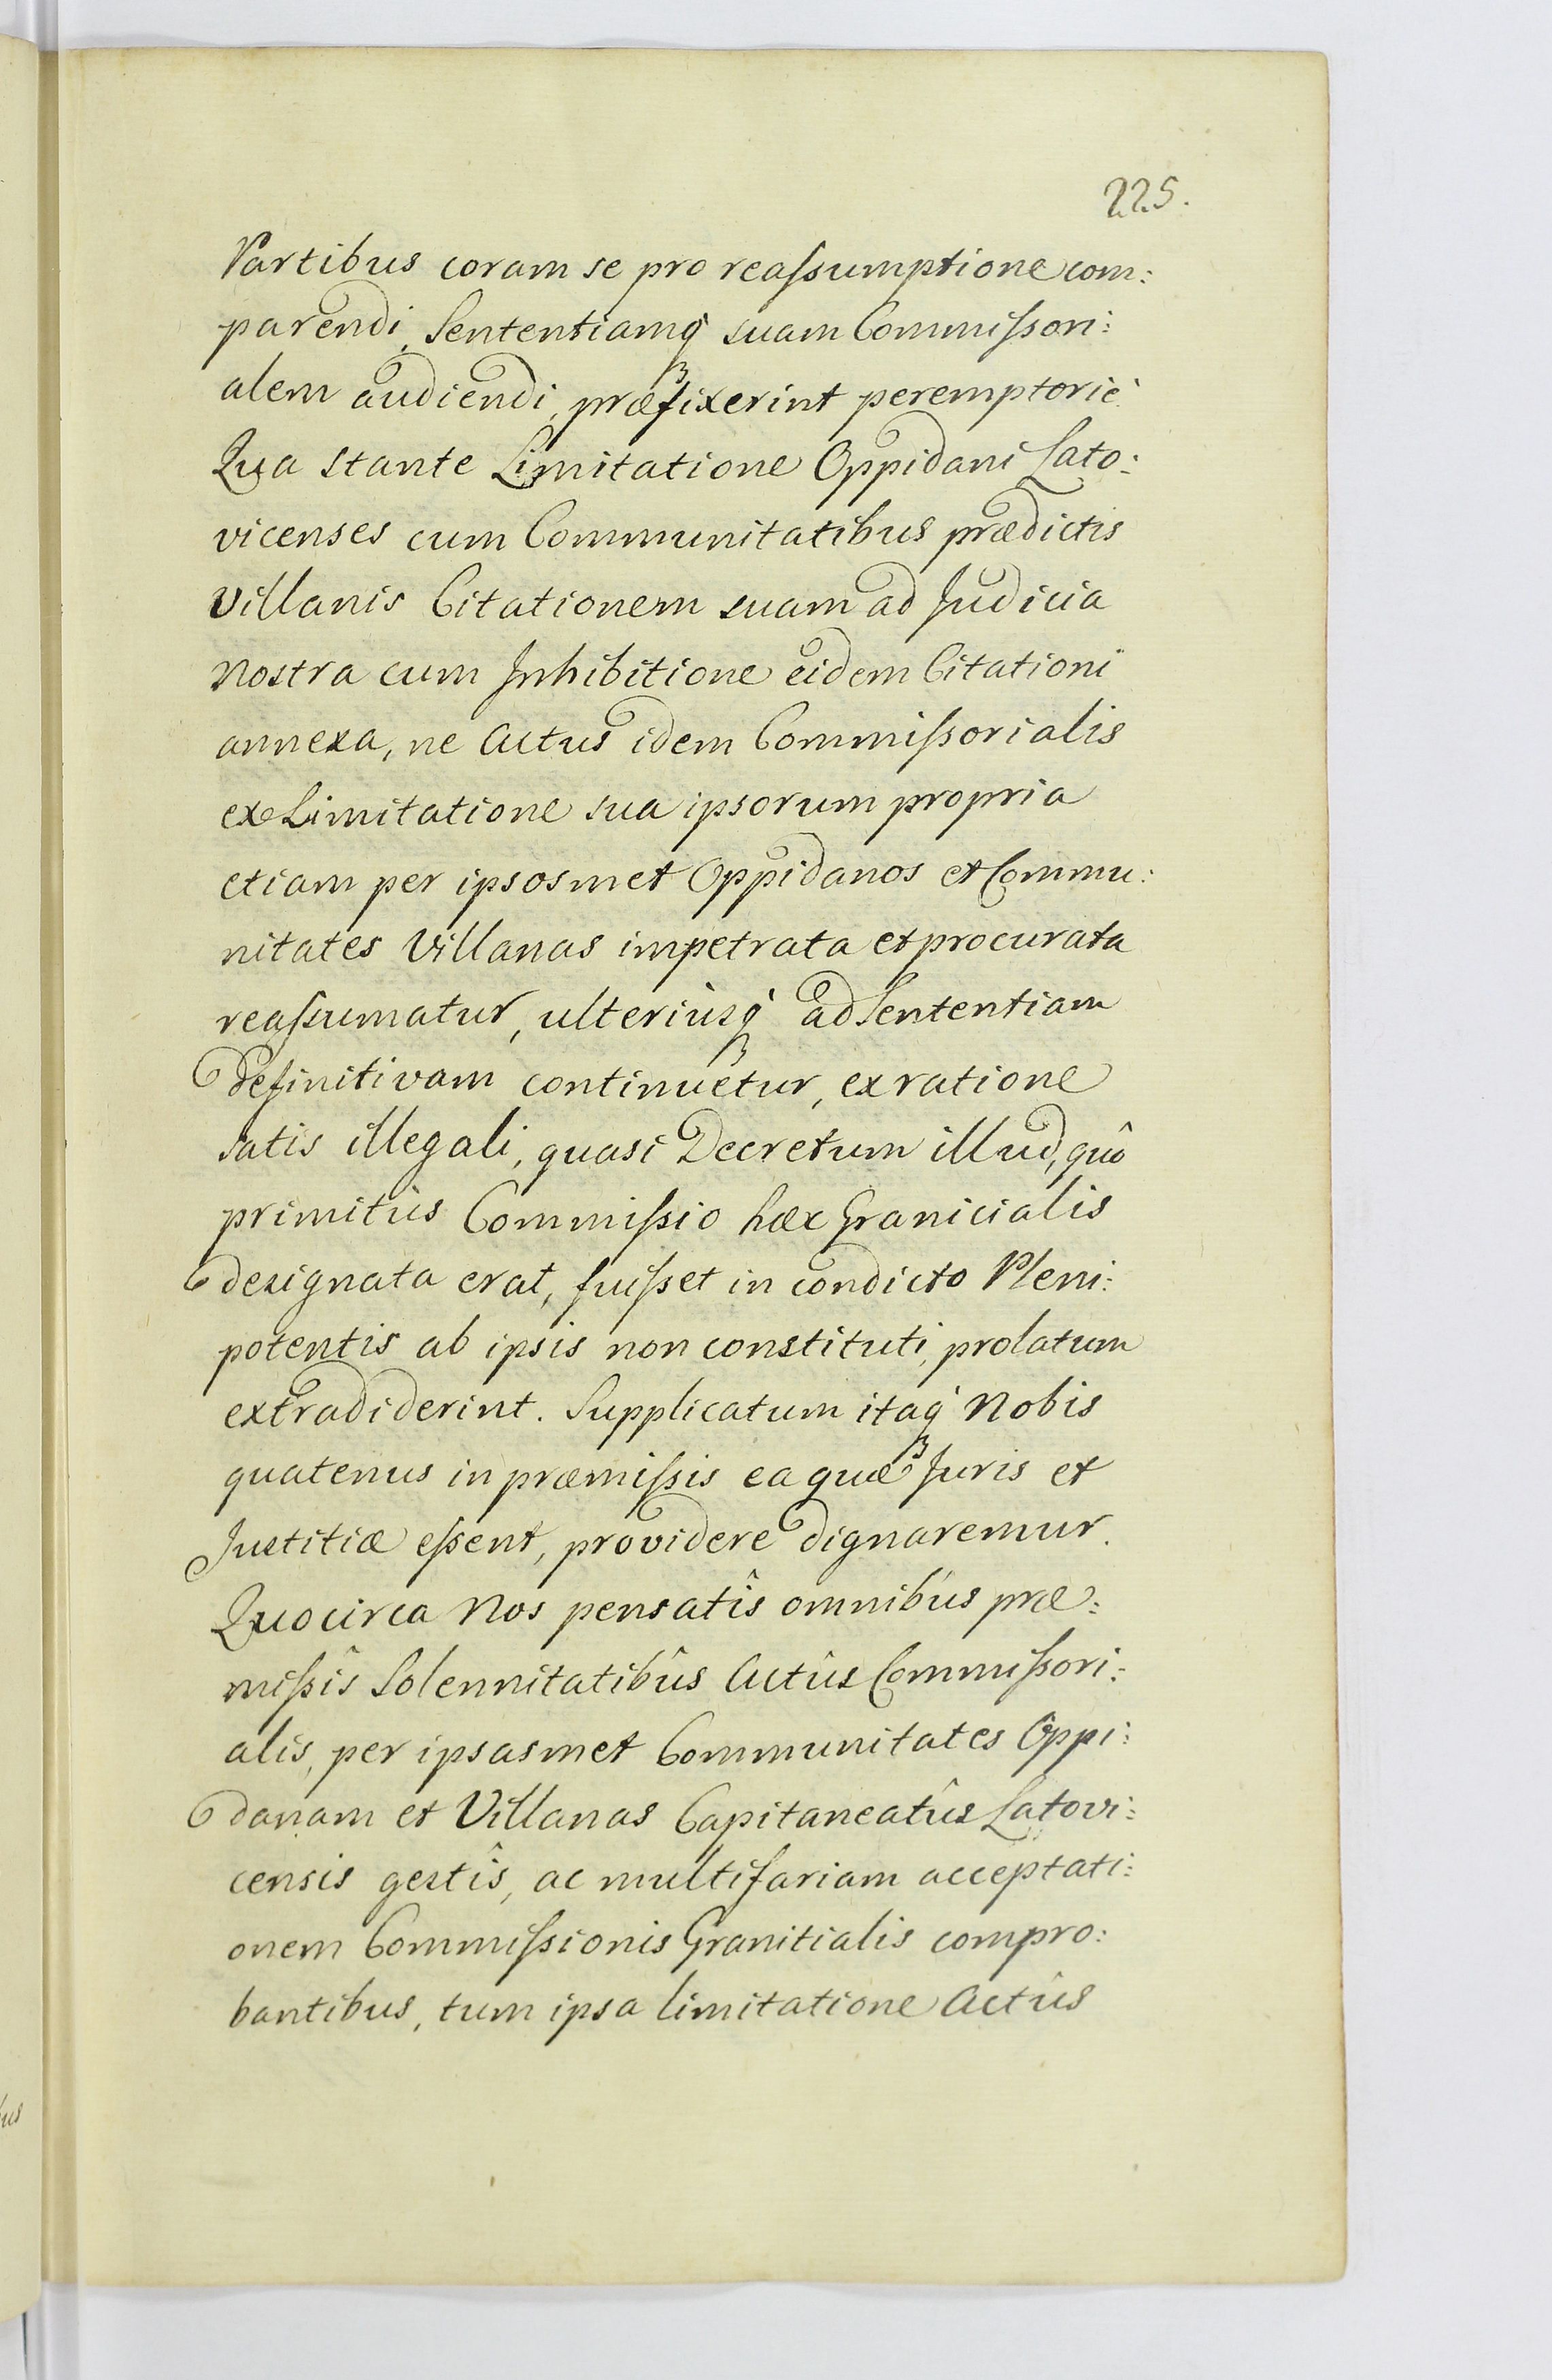 225.
Partibus coram se pro reaſsumptione com:
parendi, Sententiamq́ꝫ suam Commiſsori:
alem audiendi, præfixerint peremptoriè.
Qua stante Limitatione Oppidani Lato:
vicenses cum Communitatibus prædictis
Villanis Citationem suam ad Judicia
Nostra cum Inhibitione eidem Citationi
annexa, ne Actus idem Commiſsorialis
ex Limitatione sua ipsorum propria
etiam per ipsosmet Oppidanos et Commu:
nitates Villanas impetrata et procurata
reaſsumatur, ulteriùsq́ꝫ ad Sententiam
definitivam continuetur, ex ratione
satis illegali, quasi Decretum illud, quô
primitùs Commiſsio hæc Granicialis
designata erat, fuiſset in condicto Pleni:
potentis ab ipsis non constituti, prolatum
extradiderint. Supplicatum itaq́ꝫ Nobis
quatenus in præmiſsis ea quæ Juris et
Justitiæ eſsent, providere dignaremur.
Quocirca Nos pensatîs omnibus præ:
miſsîs Solennitatibûs Actûs Commiſsori:
alis, per ipsasmet Communitates Oppi:
danam et Villanas Capitaneatûs Latovi:
censis gestîs, ac multifariam acceptati:
onem Commiſsionis Granitialis compro:
bantibus, tum ipsa limitatione Actûs
bus